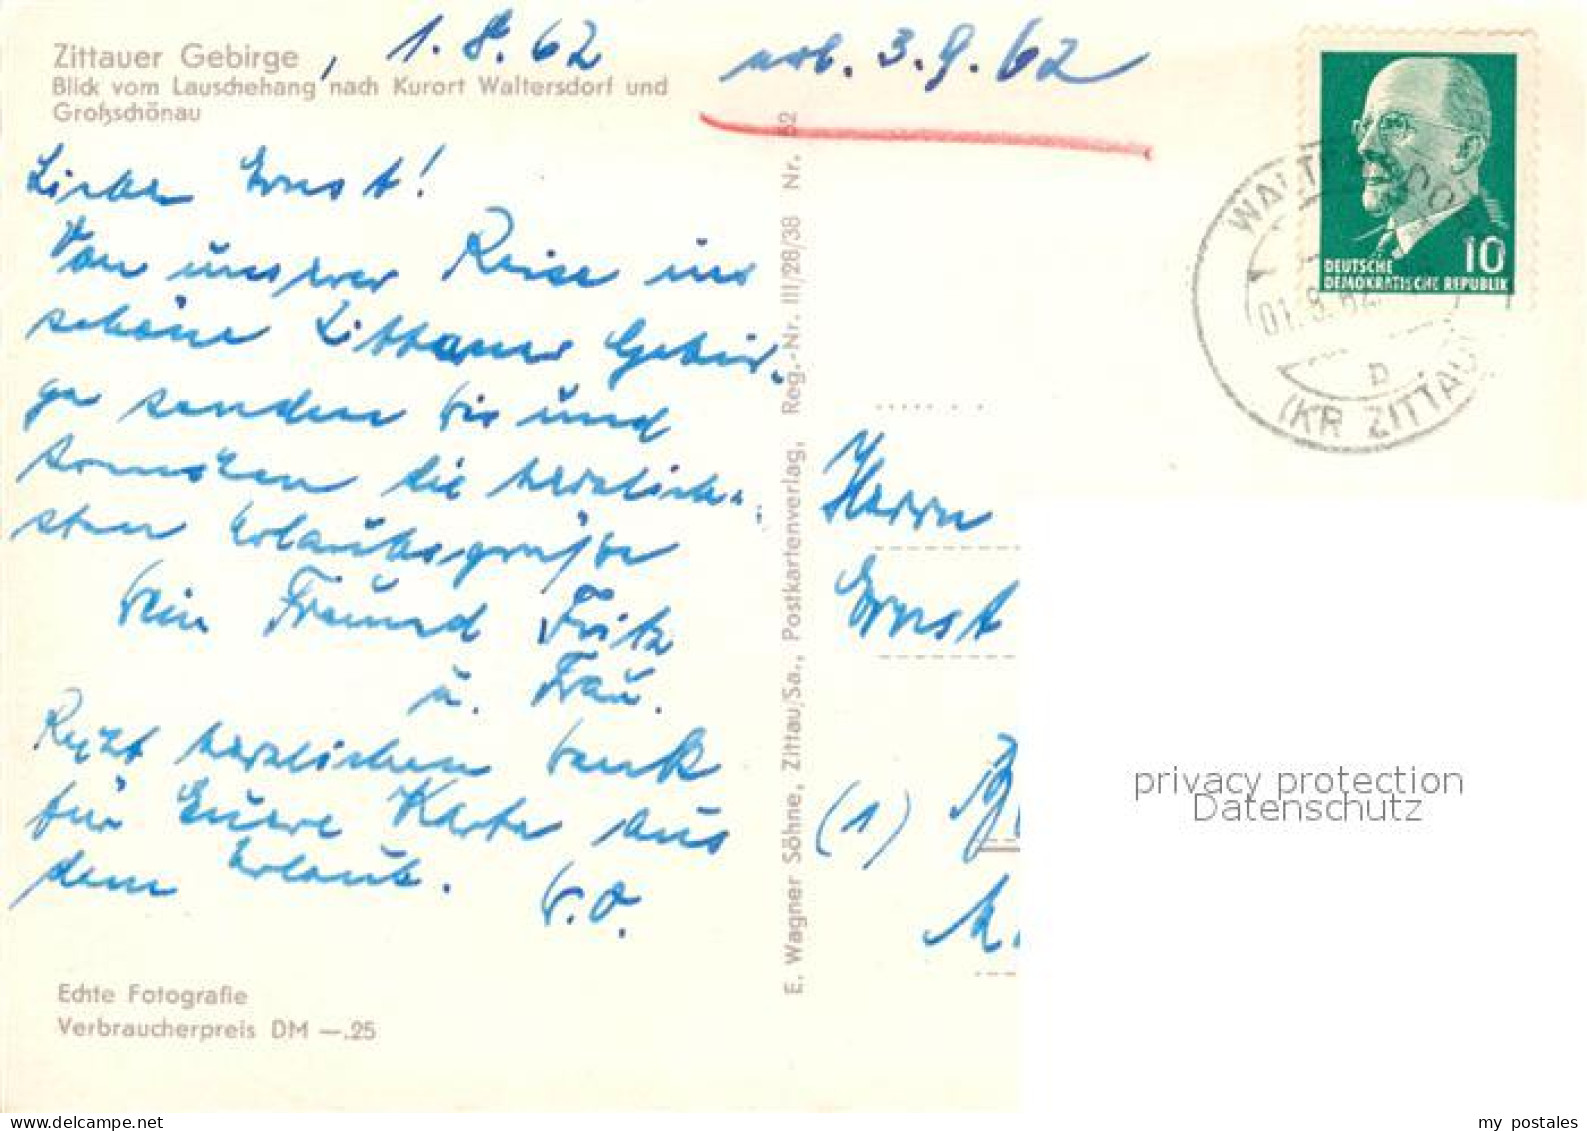 Zittauer Gebirge, 1.8.62
Blick vom Lauschehang nach Kurort Waltersdorf und
Großschönau
erh. 3.9.62
Lieber Ernst!
Von unserer Reise ins
schöne Zittauer Gebir-
ge senden wir und
die herzlich-
sten Urlaubsgrüße
Dein Freund Fritz
u. Frau.
Recht herzlichen Dank
für Eure Karte aus
dem Urlaub. D.O.
Echte Fotografie
Verbraucherpreis DM —.25
E. Wagner Söhne, Zittau/Sa., Postkartenverlag, Reg.-Nr. III/28/38 Nr. 52
DEUTSCHE
DEMOKRATISCHE REPUBLIK
10
WALTERSDORF
01.9.62
b
(KR ZITTAU)
Herrn
Ernst
(1)
privacy protection
Datenschutz
my postales